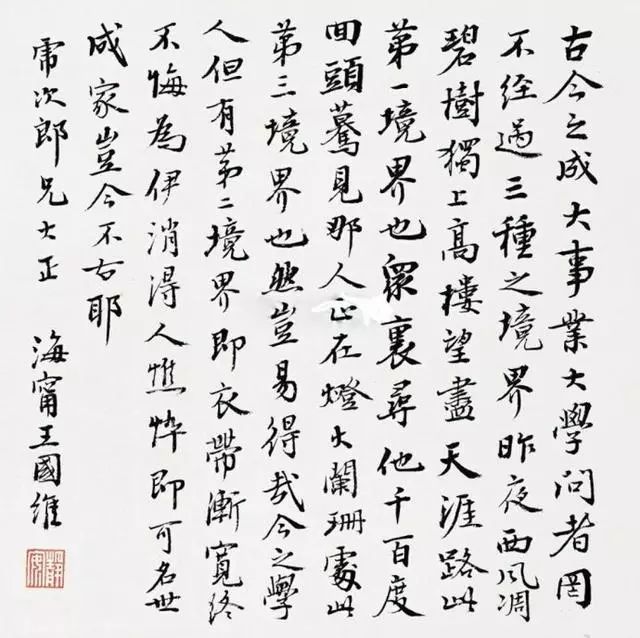 古今之成大事業大學問者罔
不经過三種之境界昨夜西风凋
碧樹獨上高樓望盡天涯路此
第一境界也眾裏尋他千百度
回頭驀見那人正在燈火闌珊處此
第三境界也然豈易得哉今之學
人但有第二境界即衣帶漸寬終
不悔為伊消得人憔悴即可名世
成家豈今不古耶
帍次郎兄大正
海甯王國維
靜安